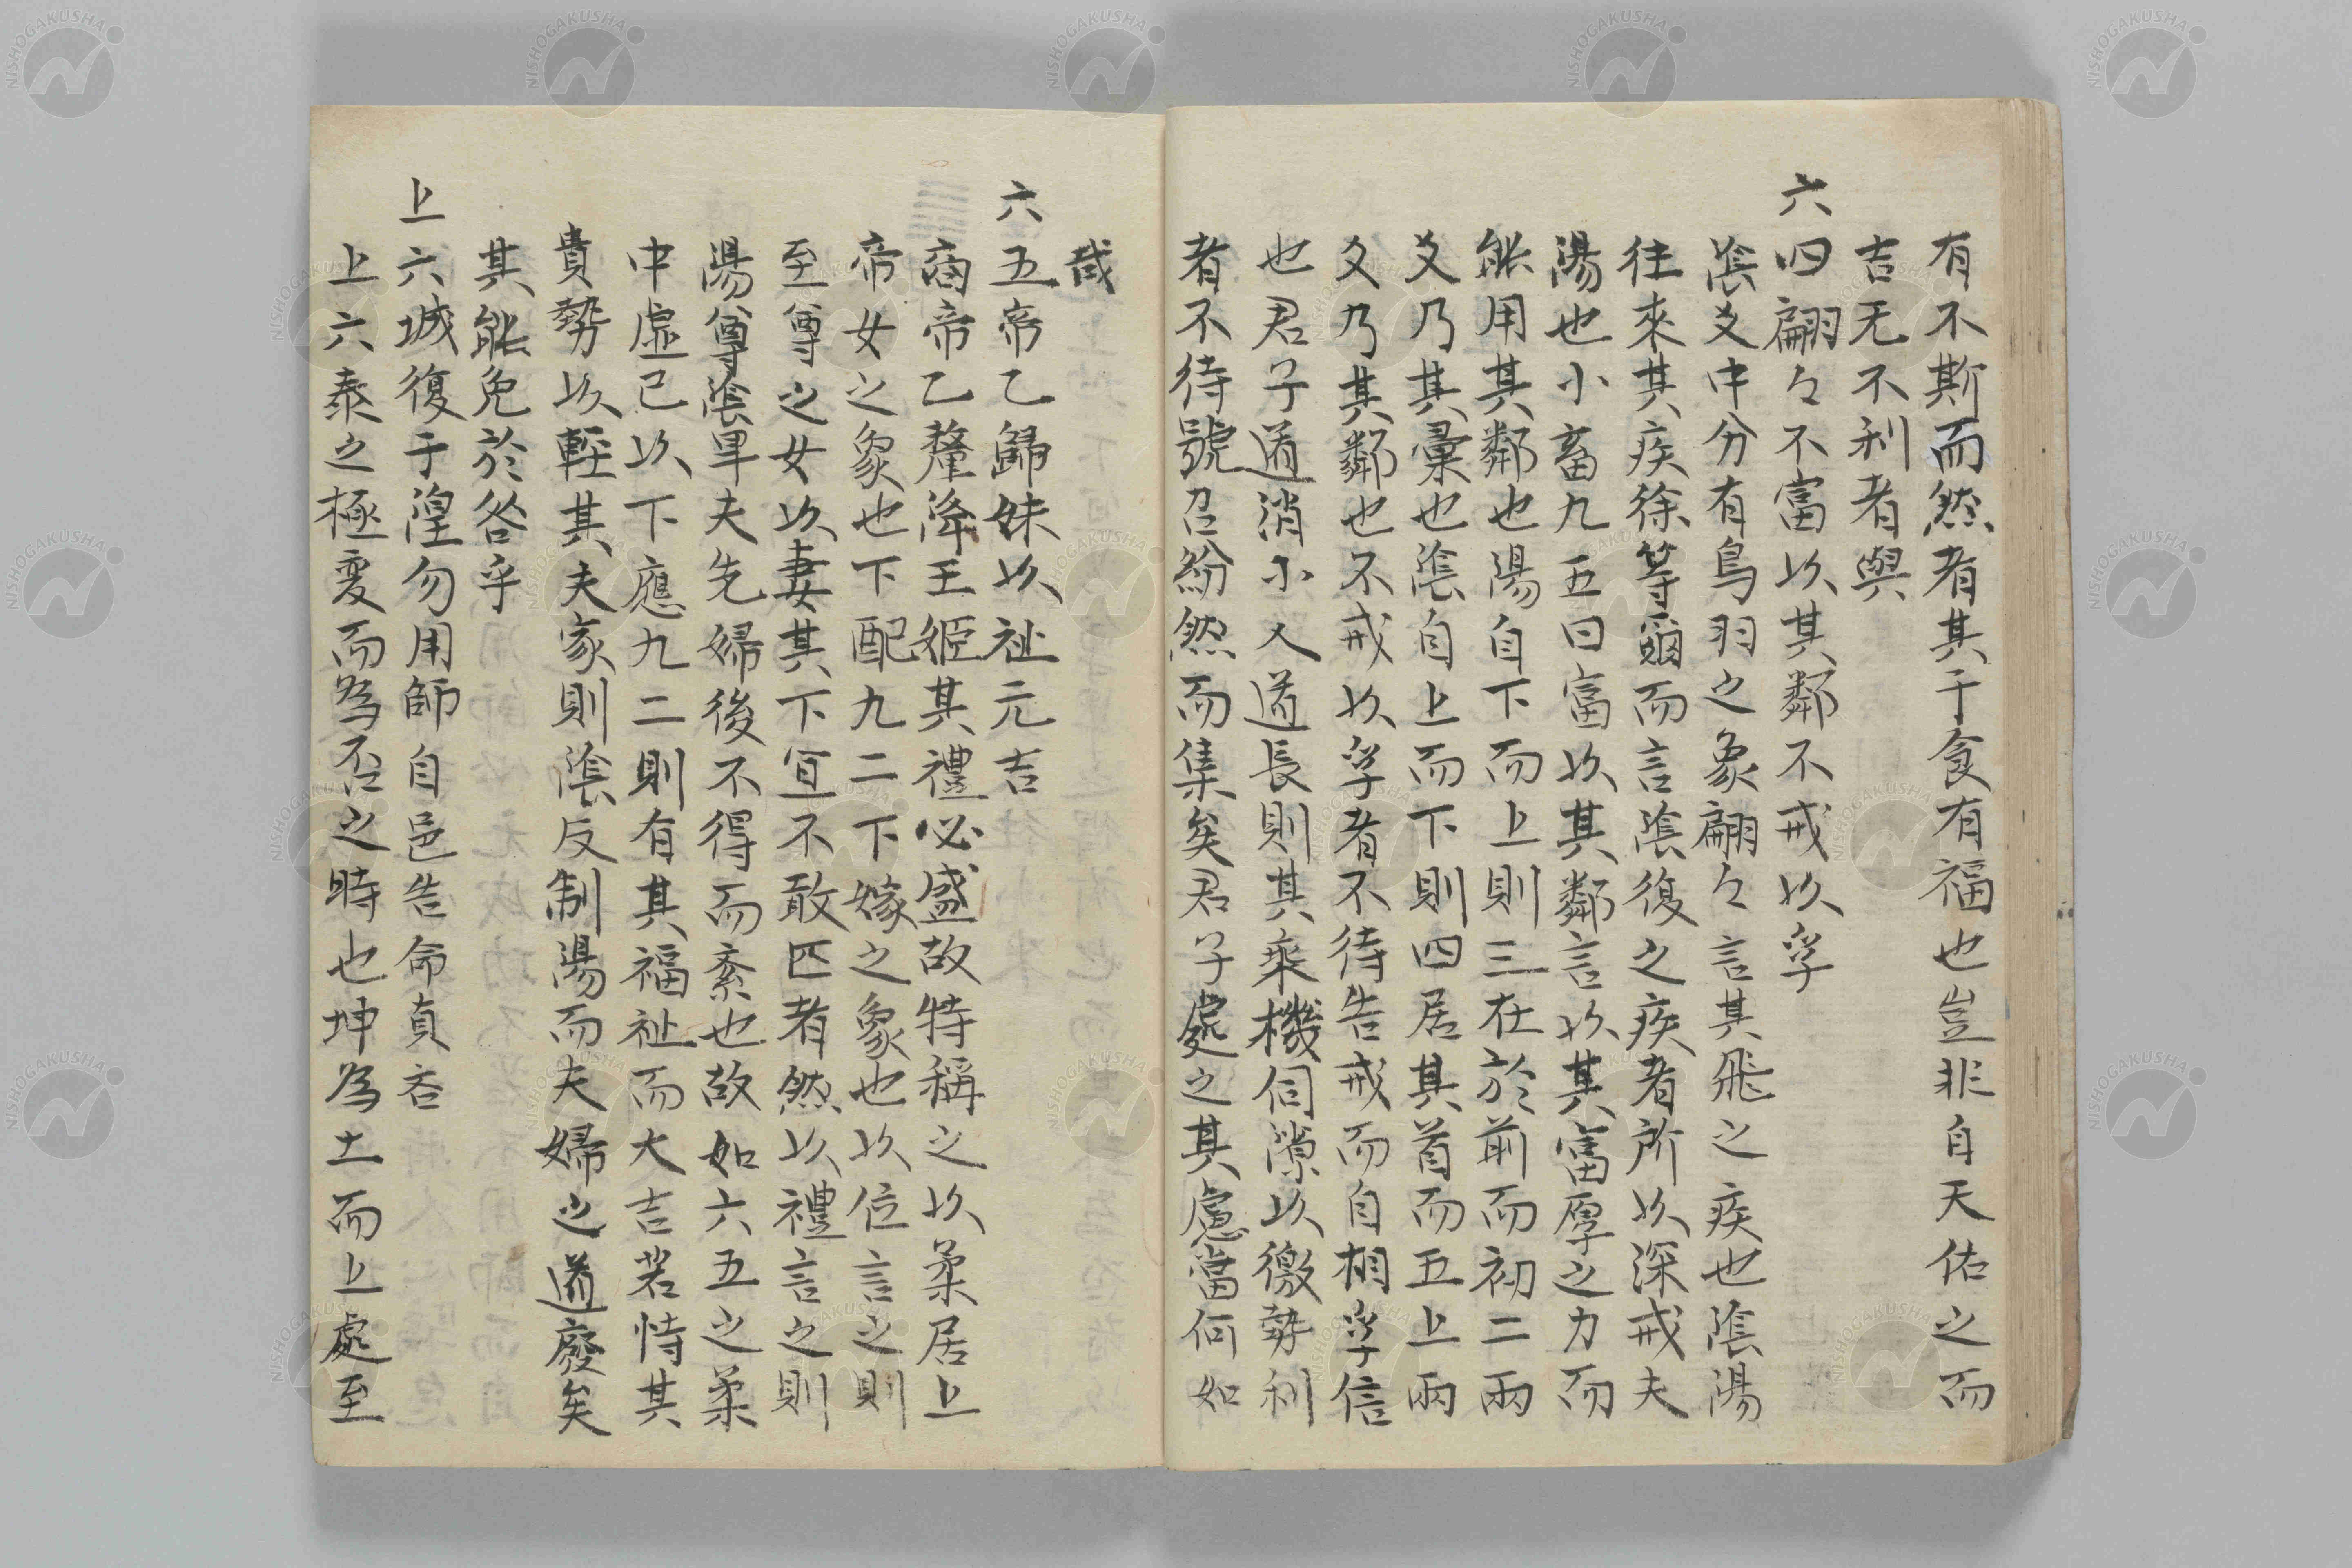 有不斯而然者其于食有福也豈非自天佑之而
吉无不利者與
六四翩々不富以其鄰不戒以孚
陰爻中分有鳥羽之象翩々言其飛之疾也陰陽
往來其疾徐等爾而言陰復之疾者所以深戒夫
陽也小畜九五曰富以其鄰言以其富厚之力而
能用其鄰也陽自下而上則三在於前而初二兩
爻乃其彙也陰自上而下則四居其首而五上兩
爻乃其鄰也不戒以孚者不待告戒而自相孚信
也君子道消小人道長則其乘機伺隙以徼勢利
者不待號召紛然而集矣君子處之其慮當何如
哉
六五帝乙歸妹以祉元吉
商帝乙釐降王姬其禮必盛故特稱之以柔居上
帝女之象也下配九二下嫁之象也以位言之則
至尊之女以妻其下宜不敢匹者然以禮言之則
陽尊陰卑夫先婦後不得而紊也故如六五之柔
中虛己以下應九二則有其福祉而大吉若恃其
貴勢以輕其夫家則陰反制陽而夫婦之道廢矣
其能免於咎乎
上六城復于湟勿用師自邑告命貞吝
上六泰之極変而為否之時也坤為土而上處至